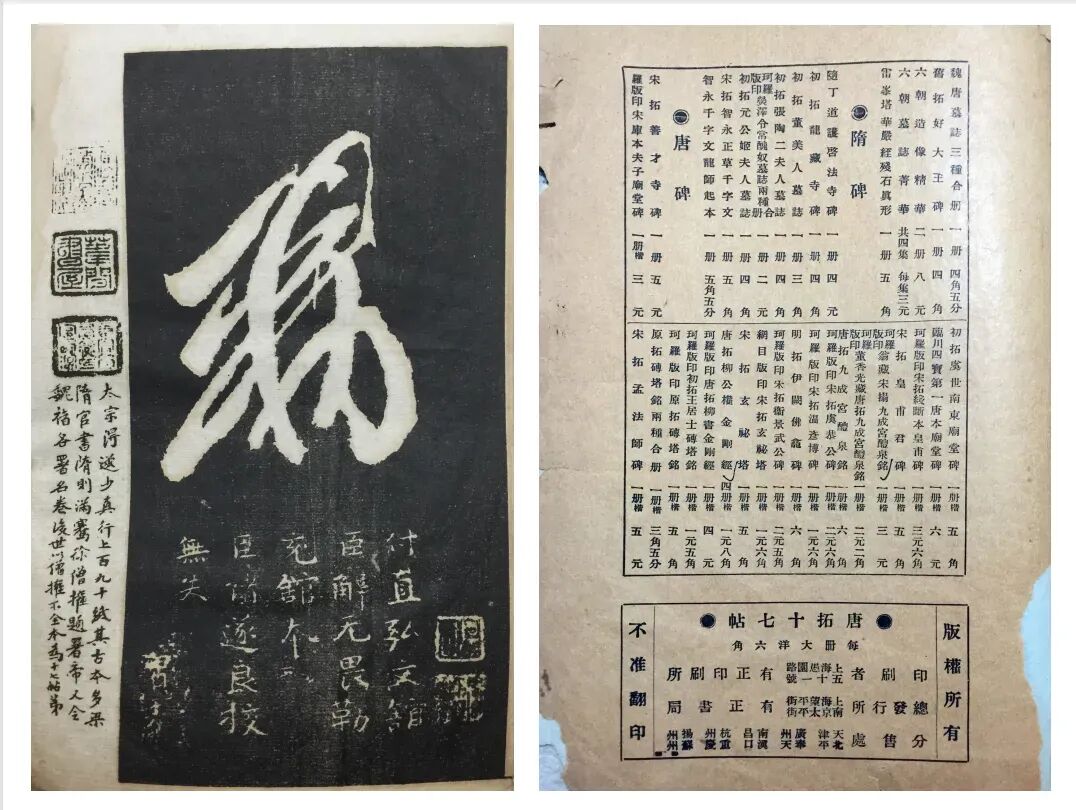 敕
付直弘文館
臣解无畏勒
充館本
臣褚遂良挍
無失
隋官書隋則滿騫徐僧權題署帝又令
魏褚各署名卷後世以僧權不全本為十七帖第
魏唐墓誌三種合册 一册 四角五分
舊拓好大王碑 一册 四角
六朝造像精華 二册 八元
六朝墓誌菁華 共四集 每集三元
雷峯塔華嚴經殘石眞形 一册 五角
隋碑
隨丁道護啓法寺碑 一册 四元
初拓龍藏寺碑 一册 四角
初拓董美人墓誌 一册 三角
初拓張陶二夫人墓誌 一册 四元
珂羅版印吳澤令常醜奴墓誌兩種合册 二元
初拓元公姬夫人墓誌 一册 四角
宋拓智永正草千字文 一册 五角
智永千字文龍師起本 一册 五角五分
唐碑
宋拓善才寺碑 一册 五元
珂羅版印宋庫本夫子廟堂碑 一册楷 三元
初拓虞世南東廟堂碑 一册楷 五角
臨川四寶第一唐本廟堂碑 一册楷 六元
珂羅版印宋拓綫斷本皇甫碑 一册楷 三元六角
宋拓皇甫君碑 一册楷 五角
珂羅版印翁藏宋搨九成宮醴泉銘 一册楷 三元
珂羅版印董香光藏唐拓九成宮醴泉銘 一册楷 二元二角
唐拓九成宮醴泉銘 一册楷 六角
珂羅版印宋拓虞恭公碑 一册楷 二元六角
珂羅版印宋拓溫彥博碑 一册楷 一元六角
明拓伊闕佛龕碑 一册楷 六角
珂羅版印宋拓衞景武公碑 一册楷 二元五角
網目版印宋拓玄祕塔 一册楷 一元六角
宋拓玄祕塔 一册楷 五角
唐拓柳公權金剛經 四册楷 一元八角
珂羅版印唐拓柳書金剛經 一册楷 四元
珂羅版印初拓王居士磚塔銘 一册楷 一元五角
珂羅版印原拓磚塔銘 一册楷 五角
原拓磚塔銘兩種合册 一册楷 三角五分
宋拓孟法師碑 一册楷 五元
唐拓十七帖
每册大洋六角
版權所有
印刷者
上海五馬路
有正印刷所
總發行所
有正書局
分售處
天津 北平
不准翻印